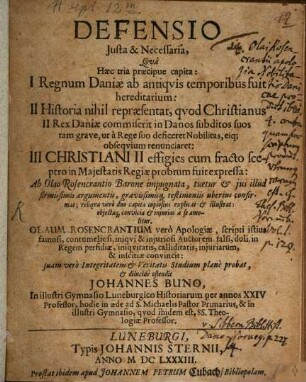 DEFENSIO
Justa & Necessaria,
Qvâ
Hæc tria præcipue capita:
I Regnum Daniæ ab antiqvis temporibus fuit
hereditarium:
II Historia nihil repræsentat, qvod Christianus
II Rex Daniæ commiserit in Danos subditos suos
tam grave, ut à Rege suo desiceret Nobilitas, eiq;
obseqvium renunciaret:
III CHRISTIANI II effigies cum fracto sce-
ptro in Majestatis Regiæ probrum fuit expressa:
Ab Olao Rosencrantio Barone impugnata, tuetur & jus illud
firmissimis argumentis, gravissimisq; testimoniis uberius confir-
mat; reliqva verò duo capita copiosius explicat & illustrat:
OLAUM ROSENCRANTIUM verò Apologiæ, scripti istius
famosi, contumeliosi, iniqvi & injuriosi Auctorem falsi, doli, in
Regem perfidiæ, iniqvitatis, calliditatis, injuriarum,
& inscitiæ convincit:
suam verò Integritatem & Veritatis Studium planè probat,
& dilucidè ostendit
JOHANNES BUNO,
In illustri Gymnasio Luneburgico Historiarum per annos XXIV
Professor, hodie in æde ad S. Michaelis Pastor Primarius, & in
illustri Gymnasio, qvod ibidem est, SS. Theo-
logiæ Professor.
LUNEBURGI,
Typis JOHANNIS STERNII,
ANNO M DC LXXXIII.
Prostat ibidem apud JOHANNEM PETRUM Cubach/ Bibliopolam.